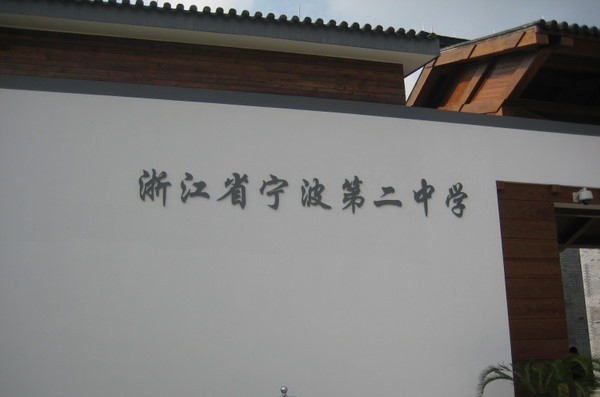 浙江省宁波第二中学